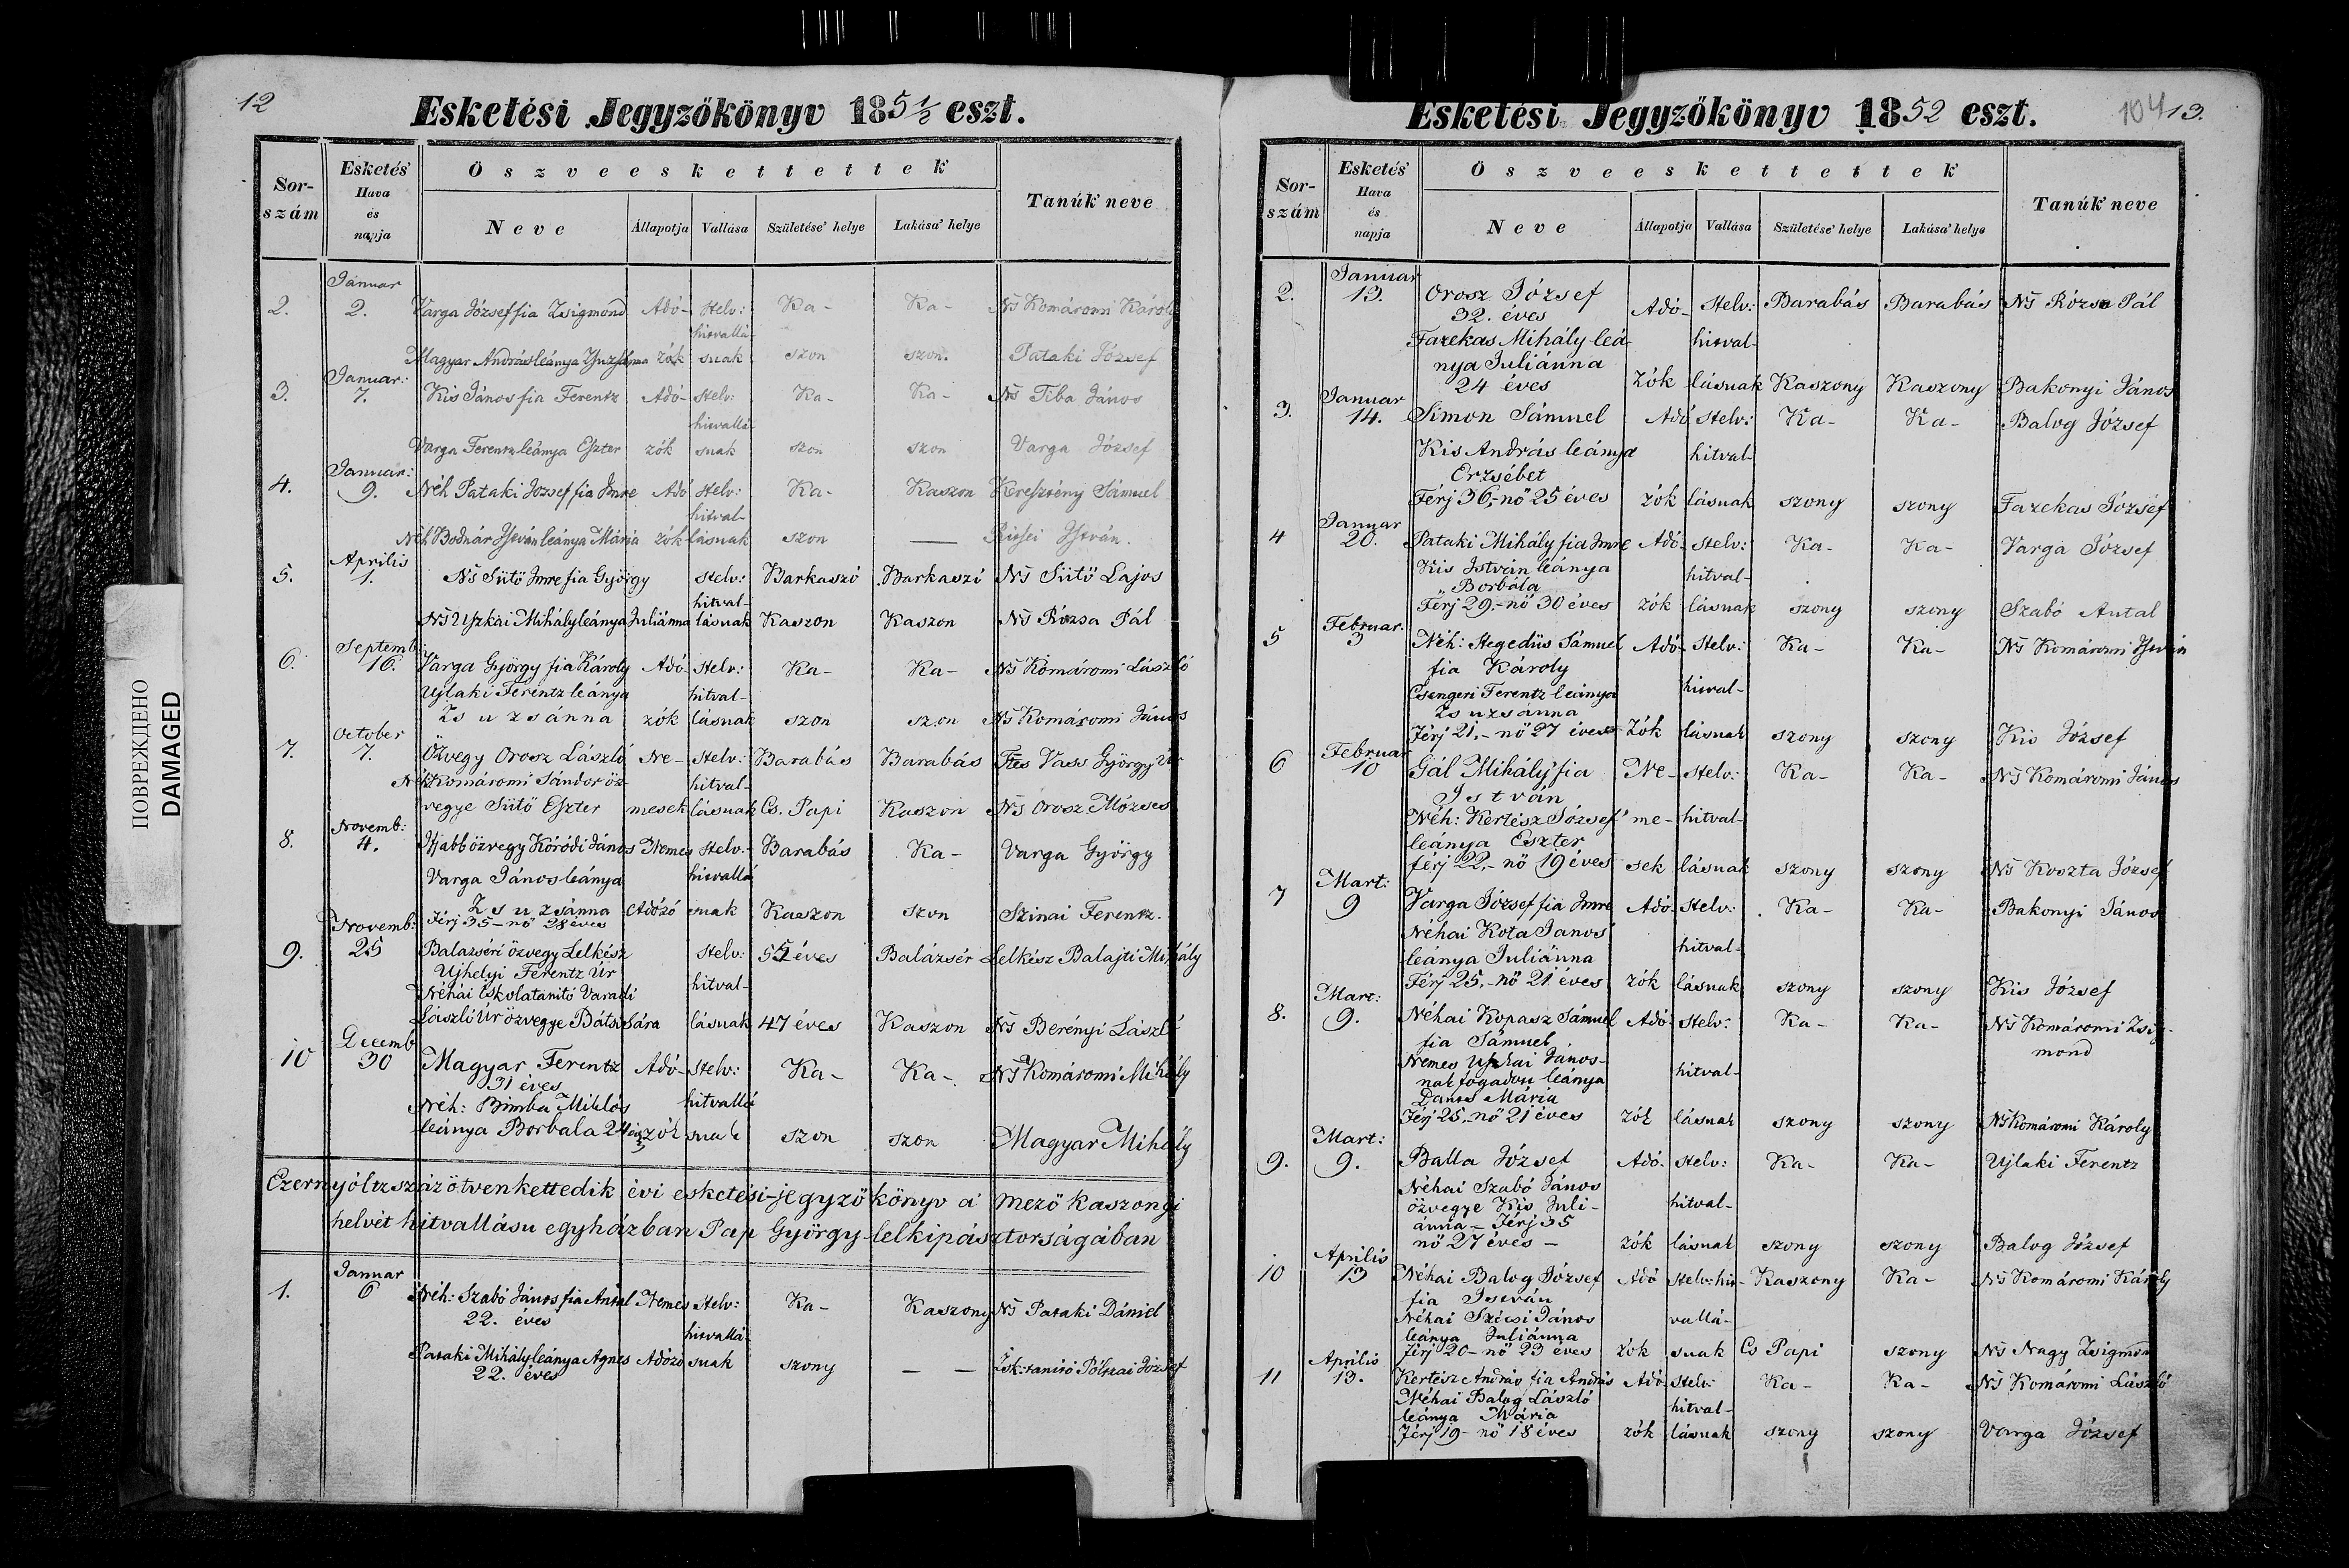 12
Esketési Jegyzőkönyv 185½ eszt.
Sor-szám
Esketés' Hava és napja
Öszveeskettettek'
Neve
Állapotja
Vallása
Születése' helye
Lakása' helye
Tanúk' neve
Januar
2. 2. Varga József fia Zsigmond Adó- Helv: Ka- Ka- Ns Komáromi Károly
hitvallá-
Magyar András leánya Zsuzsánna zók suak szon szon. Pataki József
Januar:
3. 7. Kis János fia Ferentz Adó- Helv: Ka- Ka- Ns Tiba János
hitvallá-
Varga Ferentz leánya Eszter zók suak szon szon Varga József
Januar:
4. 9. Néh Pataki József fia Imre Adó Helv: Ka- Kaszon Keresztény Sámuel
hitval-
Néh Bodnár István leánya Mária zók lásuak szon — István.
Aprilis
5. 1. Ns Sütő Imre fia György Helv: Barkaszó Barkaszó Ns Sütő Lajos
hitval-
Ns Uszkai Mihály leánya Juliánna lásuak Kaszon Kaszon Ns Rózsa Pál
Septemb
6. 16. Varga György fia Károly Adó- Helv: Ka- Ka- Ns Komáromi László
Ujlaki Ferentz leánya hitval-
Zsuzsánna zók lásuak szon szon Ns Komáromi János
October
7. 7. Özvegy Orosz László Ne- Helv: Barabás Barabás Vass György Úr
Néh Komáromi Sándor öz- hitval-
vegye Sütő Eszter mesek lásuak Cs. Papi Kaszon Ns Orosz Mózses
Novemb:
8. 4. Ifjabb özvegy Kóródi János Nemes Helv: Barabás Ka- Varga György
Varga János leánya hitvallá
Zsuzsánna Adózó suak Kaszon szon Szinai Ferentz.
Férj 35- nő 28 éves
Novemb:
9. 25 Balazséri özvegy Lelkész Helv: 55 éves Balázsér Lelkész Balajti Mihály
Ujhelyi Ferentz Úr
Néhai Iskolatanitó Varadi hitval-
László Úr özvegye Bátsi Sára lásuak 47 éves Kaszon Ns Berényi László
Decemb
10 30 Magyar Ferentz Adó- Helv: Ka- Ka- Ns Komáromi Mihály
31 éves
Néh: Bimba Miklós hitvallá
leánya Borbala 24 éves zók suak szon szon Magyar Mihály
Ezernyóltzszázötvenkettedik évi esketési-jegyzőkönyv a' mező kaszonyi
helvét hitvallásu egyházban Pap György lelkipásztorságában
Januar
1. 6 Néh: Szabó János fia Antal Nemes Helv: Ka- Kaszony Ns Pataki Dániel
22. éves
hitvallá-
Pataki Mihály leánya Agnes Adózó suak szony — — Isk: tanitó József
22. éves
ПОВРЕЖДЕНО
DAMAGED
Esketési Jegyzőkönyv 1852 eszt.
104
13.
Sor-szám
Esketés' Hava és napja
Öszveeskettettek'
Neve
Állapotja
Vallása
Születése' helye
Lakása' helye
Tanúk' neve
Januar
2. 13. Orosz József Adó- Helv: Barabás Barabás Ns Rózsa Pál
32. éves
Fazekas Mihály leá- hitval-
nya Juliánna
24 éves zók lásuak Kaszony Kaszony Bakonyi János
Januar
3. 14. Simon Sámuel Adó Helv: Ka- Ka- Balog József
Kis András leánya hitval-
Erzsébet
Férj 36,- nő 25 éves zók lásuak szony szony Fazekas József
Januar
4 20. Pataki Mihály fia Imre Adó- Helv: Ka- Ka- Varga József
Kis István leánya hitval-
Borbála
Férj 29.- nő 30 éves zók lásuak szony szony Szabó Antal
Februar.
5 3 Néh: Hegedüs Sámuel Adó- Helv: Ka- Ka- Ns Komáromi István
fia Károly
Csengeri Ferentz leánya hitval-
Zsuzsánna
Férj 21,- nő 27 éves zók lásuak szony szony Kis József
Februar
6 10 Gál Mihály fia Ne- Helv: Ka- Ka- Ns Komáromi János
István
Néh: Kertész József' me- hitval-
leánya Eszter
férj 22,- nő 19 éves sek lásuak szony szony Ns Koszta József
Mart:
7 9 Varga József fia Imre Adó- Helv: Ka- Ka- Bakonyi János
Néhai Kota János' hitval-
leánya Juliánna
Férj 25,- nő 21 éves zók lásuak szony szony Kis József
Mart:
8. 9. Néhai Kopasz Sámuel Adó- Helv: Ka- Ka- Ns Komáromi Zsig-
fia Sámuel mond
Nemes Uszkai János- hitval-
nak fogadott leánya
Mária
Férj 25,- nő 21 éves zók lásuak szony szony Ns Komáromi Károly
Mart:
9. 9. Balla József Adó- Helv: Ka- Ka- Ujlaki Ferentz
Néhai Szabó János
özvegye Kis Juli- hitval-
ánna- Férj 35
nő 27 éves- zók lásuak szony szony Balog József
Aprilis
10 13 Néhai Balog József Adó Helv: hit- Kaszony Ka- Ns Komáromi Károly
fia István
Néhai Szécsi János vallá-
leánya Juliánna
Férj 20- nő 23 éves zók suak Cs Papi szony Ns Nagy Zsigmond
Aprilis
11 13. Kertész András fia András Adó Helv: Ka- Ka- Ns Komáromi László
Néhai Balog László hitval-
leánya Mária
Férj 19- nő 18 éves zók lásuak szony szony Varga József